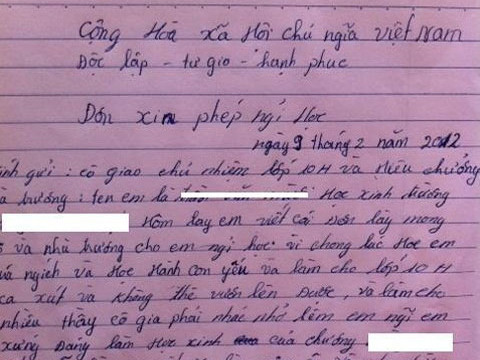 Cộng Hòa xã Hội chủ ngĩa việt Nam
Độc lập - tư gio - hạnh phuc
Dón xin phép ngỉ Học
ngày 9 tháng 2 năm 2012
ính gửi : cô giao chủ nhiệm lớp 10 H và Hiêu chưởng
à trường : ten em là Học xinh trường
Hôm lay em viết cái Đơn lày mong
và nhà trường cho em ngỉ học vì chong lúc Học em
uá ngịch và Học Hành con yếu và làm cho lớp 10 H
ca xút và không thể vươn lên Được, và làm cho
nhiều thầy cô gia phải nhác nhở lêm em ngĩ em
xưng Đáng làm Học xinh của chường